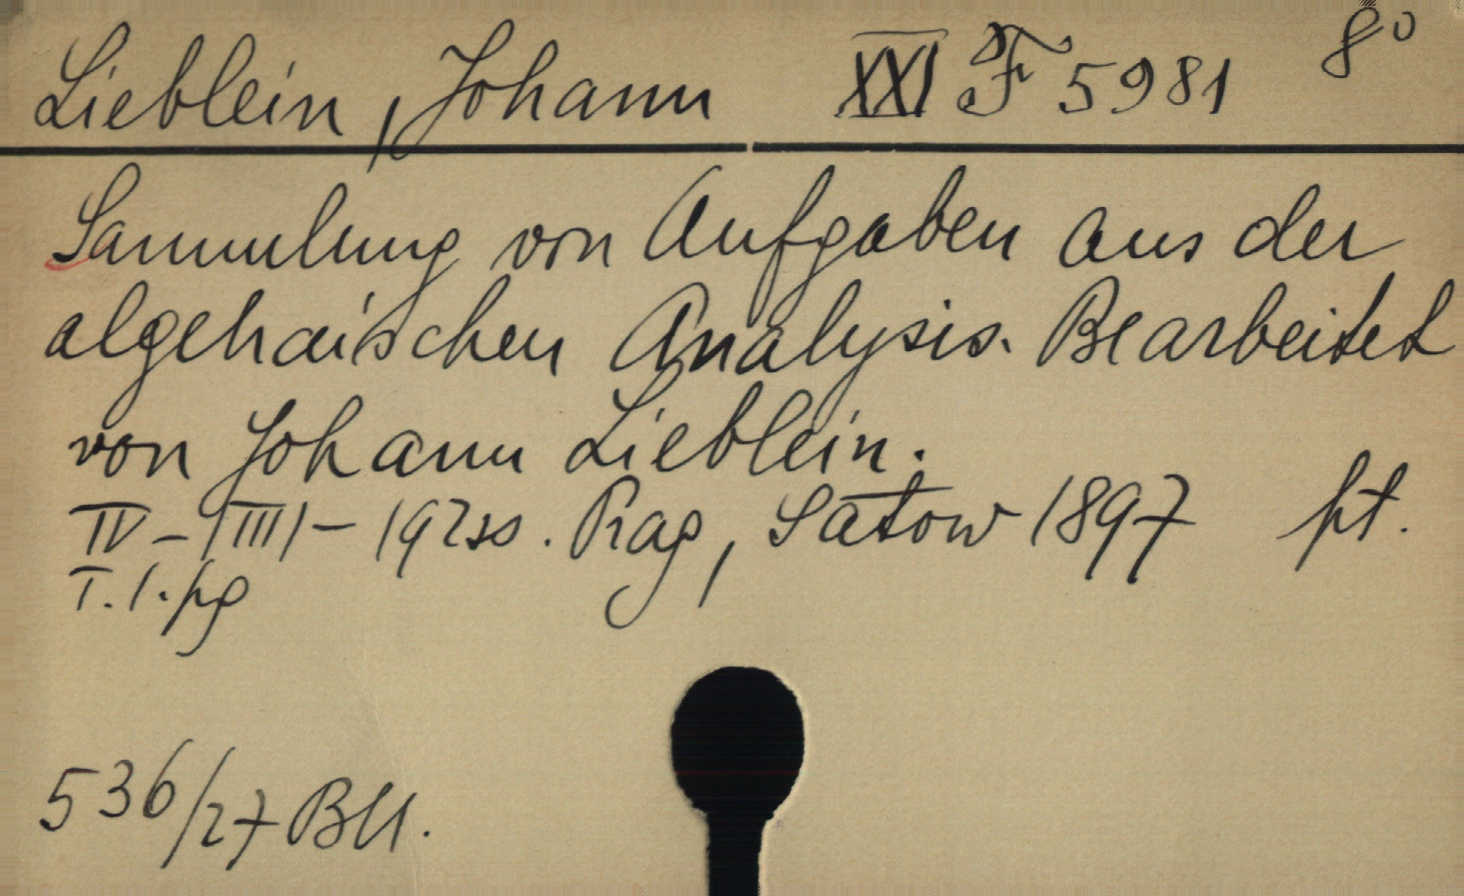 Lieblein, Johann XXI F 5981 8°
Sammlung von Aufgaben aus der
algebraischen Analysis. Bearbeitet
von Johann Lieblein.
IV - (III) - 192ss. Prag, Satow 1897 pt.
T. 1. pg
536/27 BU.